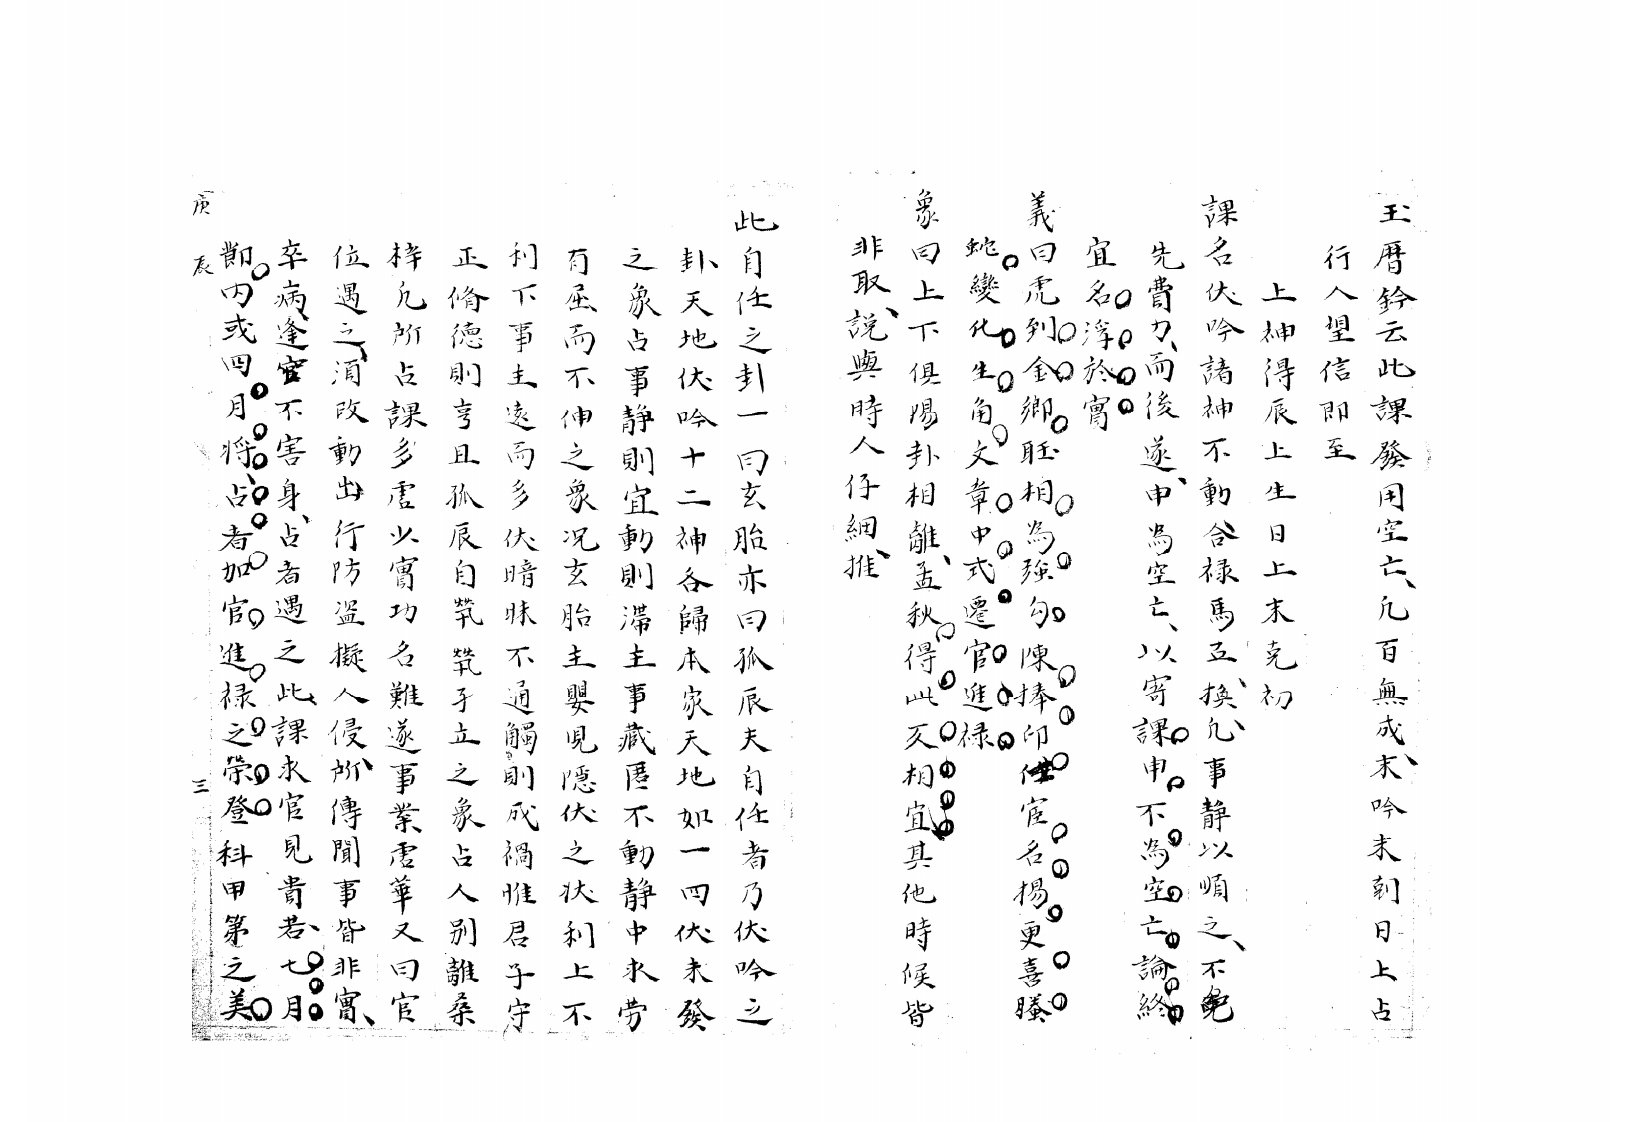 玉曆鈐云此課發用空亡、凢百無成、末吟未剋日上占
行人望信即至
上神得辰上生日上末克初
課名伏吟諸神不動、含禄馬互換、凢事静以順之、不免
先費力、而後遂、申為空亡、以寄課申不為空亡論終
宜名浮於實
義曰虎到金鄉旺相為強勾陳捧印仕宦名揚更喜螣
虵變化生角文章中式遷官進禄
象曰上下俱陽卦相離、孟秋得此又相宜其他時候皆
非取、説與時人仔細推、
此自任之卦一曰玄胎亦曰孤辰夫自任者乃伏吟之
卦天地伏吟十二神各歸本家天地如一四伏未發
之象占事静則宜動則滯主事藏匿不動静中求劳
有屈而不伸之象况玄胎主嬰児隱伏之状利上不
利下事主遠而多伏暗昧不通觸則成禍惟君子守
正脩德則亨且孤辰自煢煢孑立之象占人别離桑
梓凢所占課多虚少實功名難遂事業虚華又曰官
位遇之須改動出行防盗擬人侵所、傳聞事皆非實、
卒病逢官不害身、占者遇之此課求官見貴若七月
節内或四月將占者加官進禄之榮登科甲第之美
庚辰 三